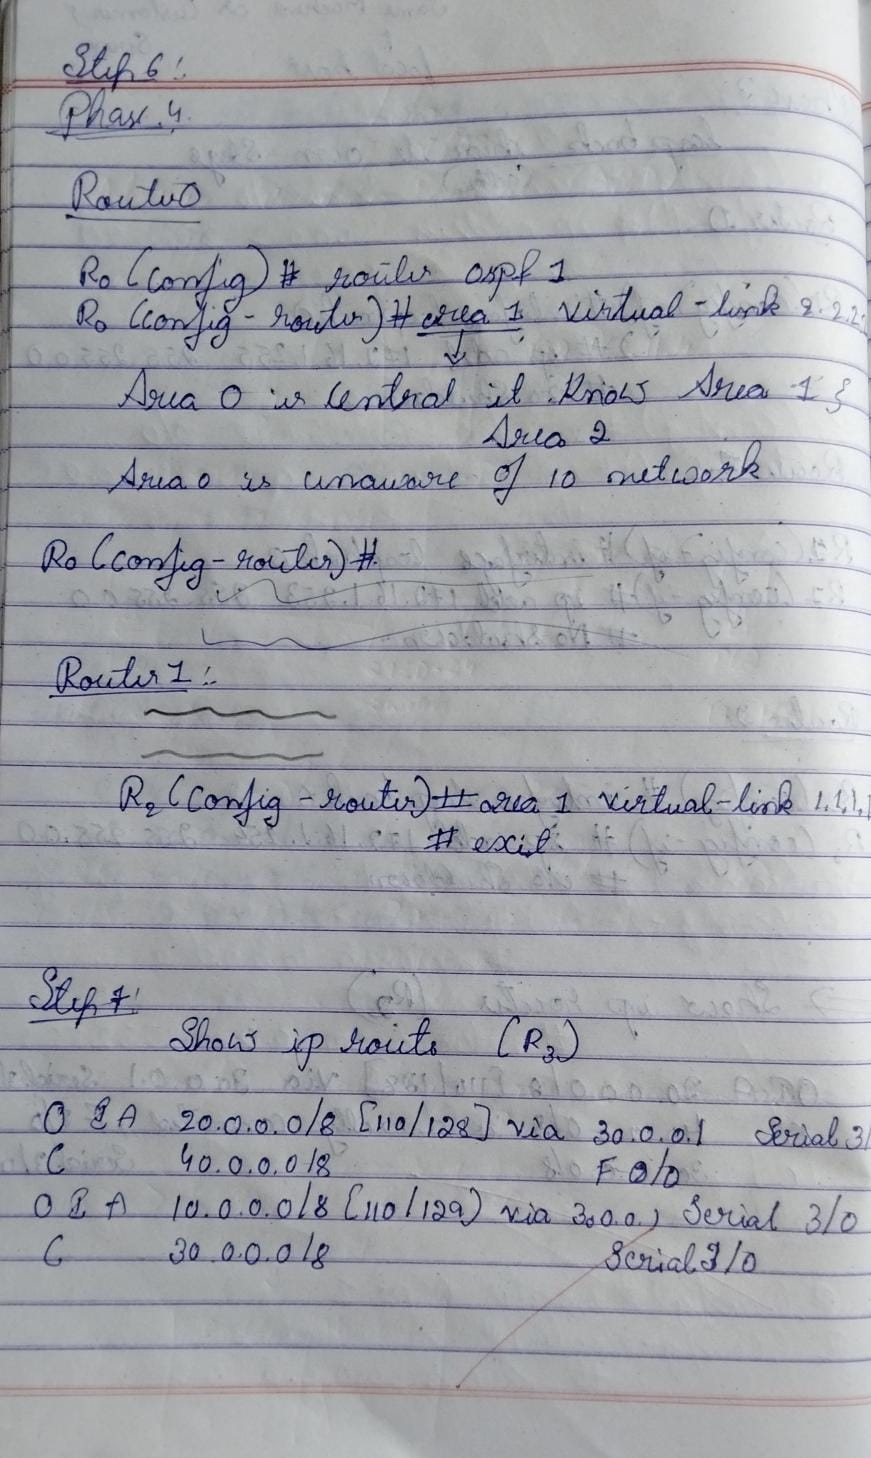 Step 6:
Phase 4.
Router0
R0 (config) # router ospf 1
R0 (config-router) # area 1 virtual-link 2.2.2.
↓
Area 0 is central it knows Area 1 &
Area 2
Area 0 is unaware of 10 network.
R0 (config-router) #
Router 1:-
R2 (config-router) # area 1 virtual-link 1.1.1.1
# exit
Step 7:
Show ip route (R3)
O I A 20.0.0.0/8 [110/128] via 30.0.0.1 Serial 3/
C 40.0.0.0/8 F 0/0
O I A 10.0.0.0/8 [110/129) via 30.0.0.1 Serial 3/0
C 30.0.0.0/8 Serial 3/0